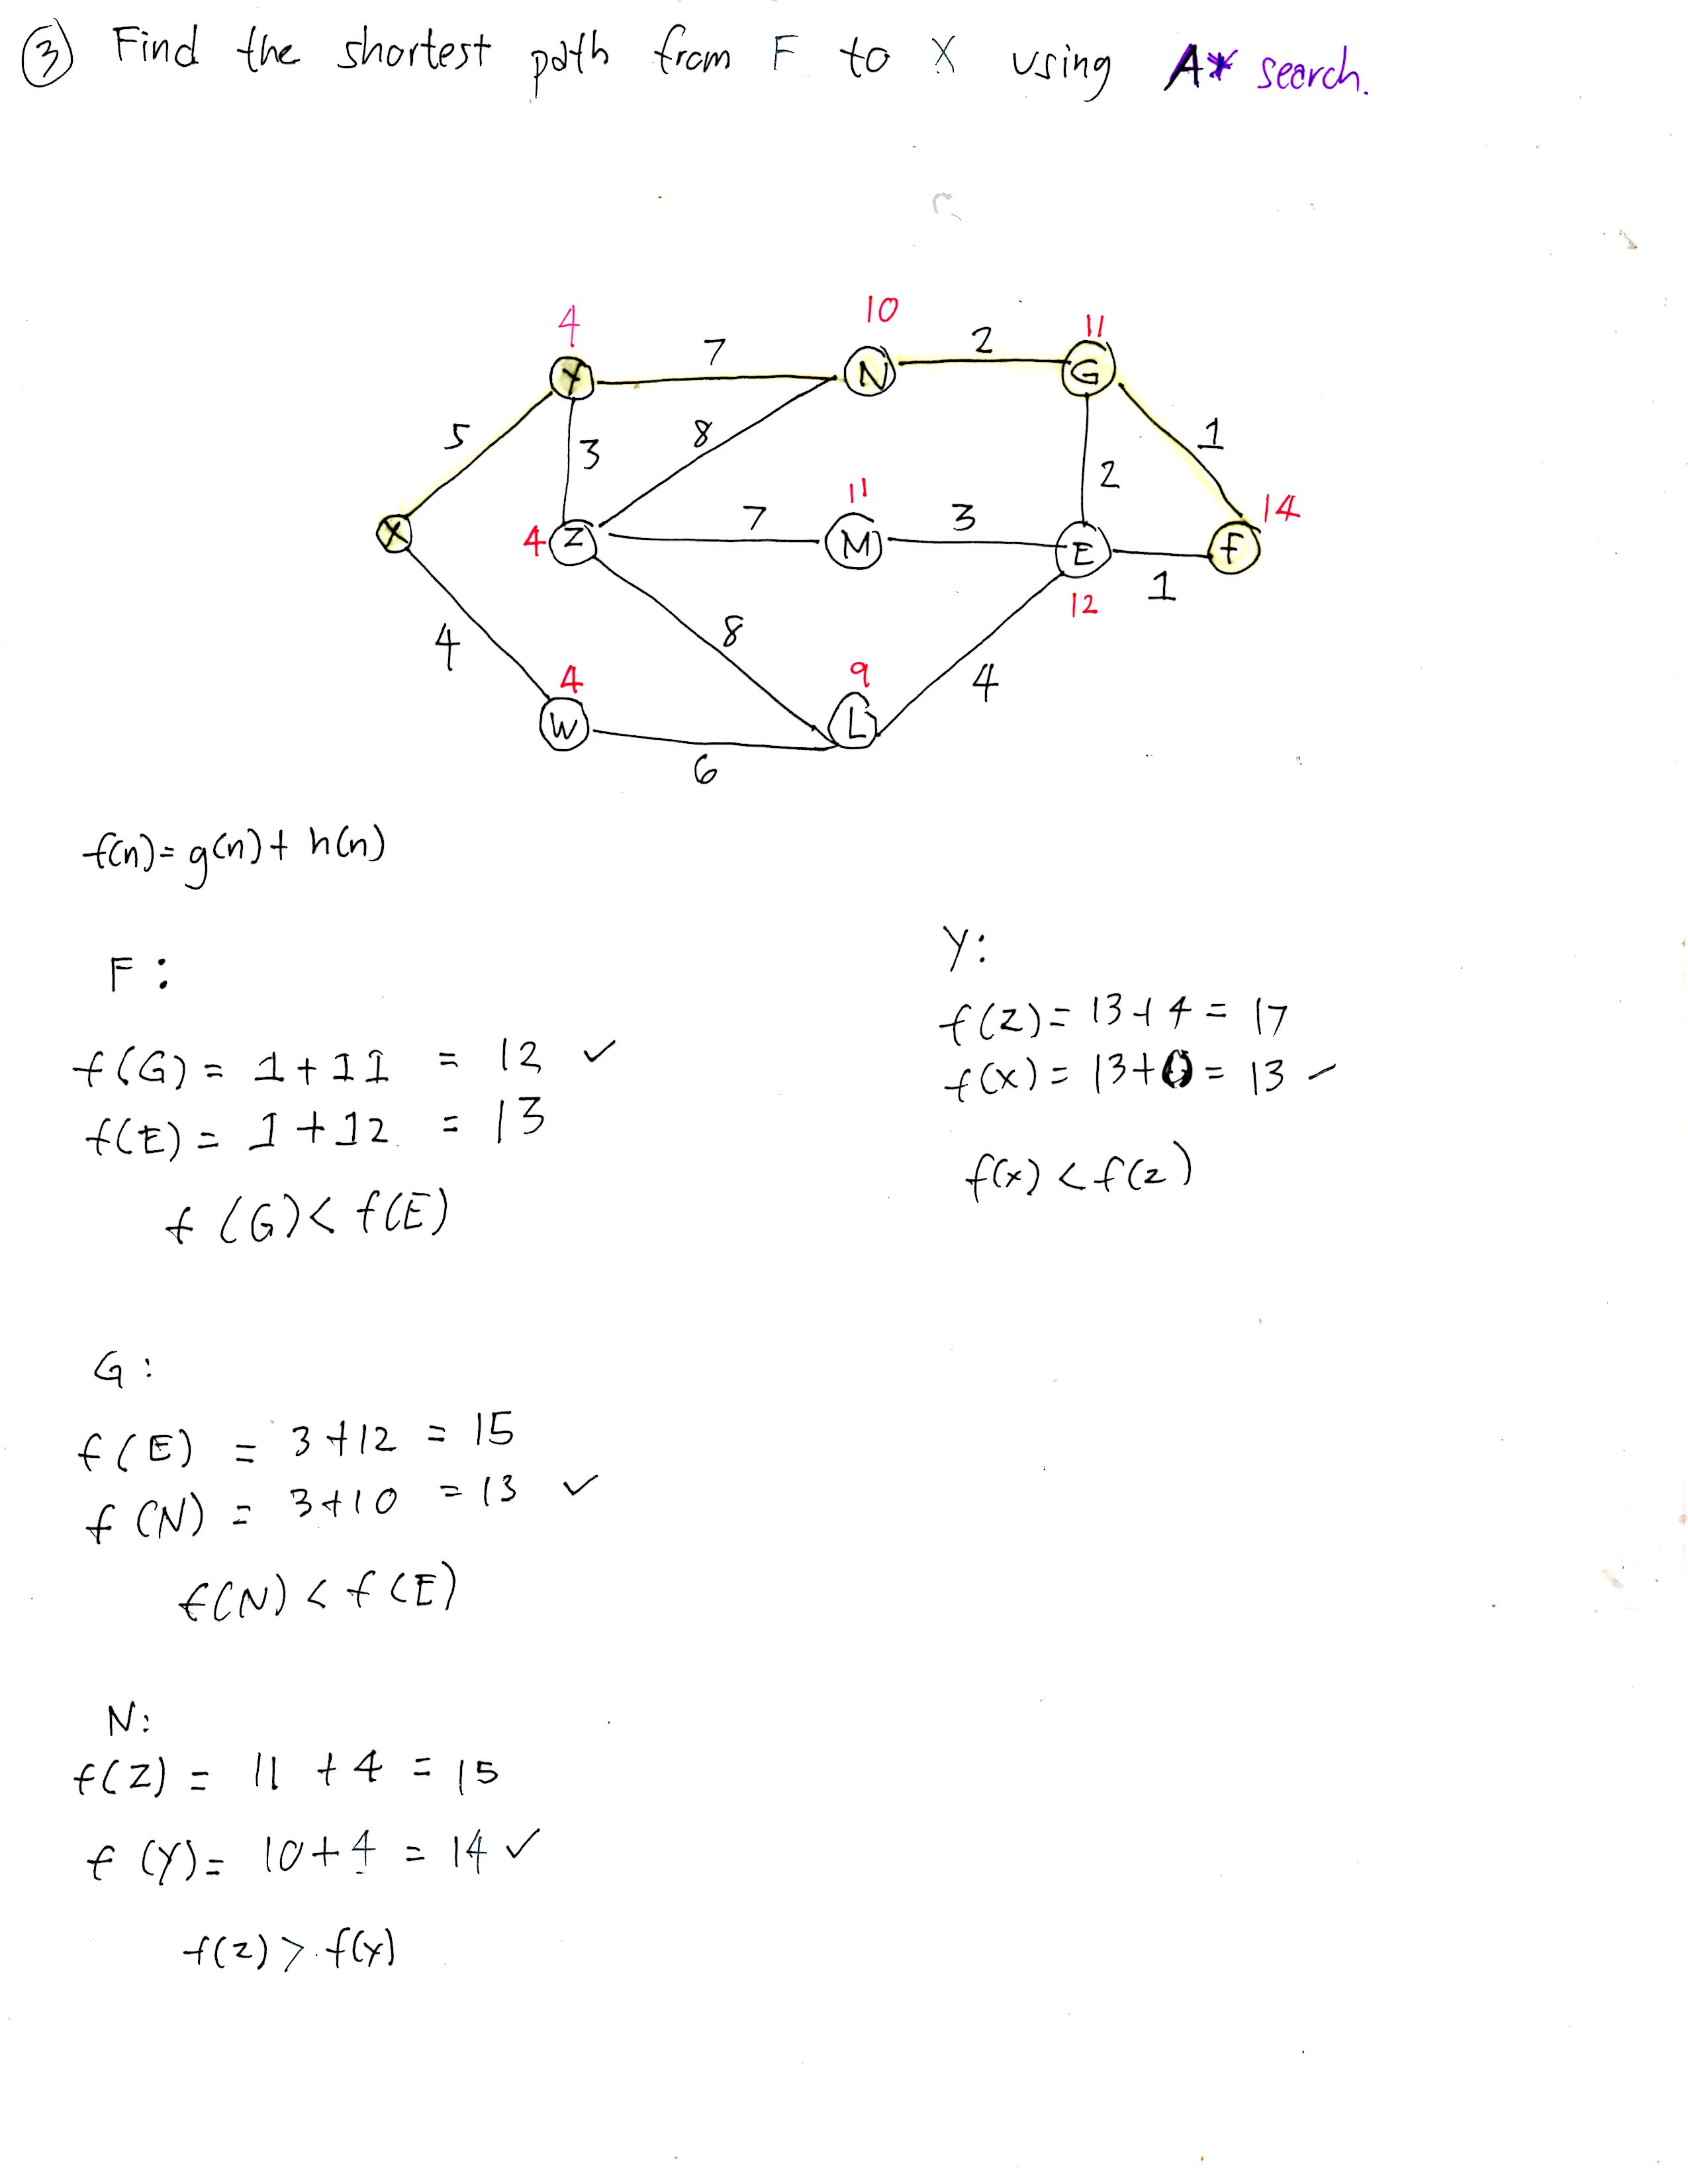 ③ Find the shortest path from F to X using A* search.
4
10
11
7
2
Y
N
G
5
3
8
1
2
11
14
X
4
Z
7
M
3
E
F
12
1
4
8
4
9
4
W
L
6
f(n) = g(n) + h(n)
F:
f(G) = 1 + 11 = 12 ✓
f(E) = 1 + 12 = 13
f(G) < f(E)
G:
f(E) = 3 + 12 = 15
f(N) = 3 + 10 = 13 ✓
f(N) < f(E)
N:
f(Z) = 11 + 4 = 15
f(Y) = 10 + 4 = 14 ✓
f(z) > f(y)
Y:
f(Z) = 13 + 4 = 17
f(x) = 13 + 0 = 13 ✓
f(x) < f(z)